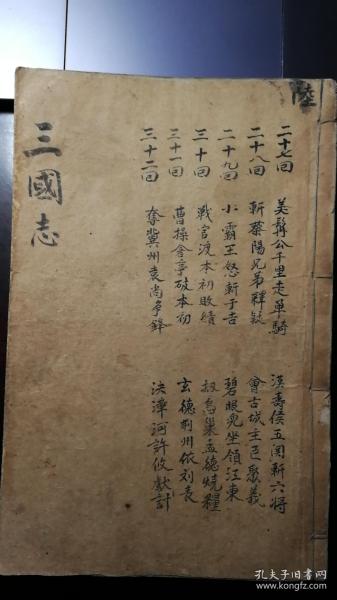 陸
二十七回 美髯公千里走單騎 漢壽侯五関斬六将
二十八回 斬蔡陽兄弟釋疑 會古城主臣聚義
二十九回 小霸王怒斬于吉 碧眼兒坐領江東
三十回 戰官渡本初敗績 刼烏巢孟德燒糧
三十一回 曹操倉亭破本初 玄德荆州依刘表
三十二回 奪冀州袁尚争鋒 决漳河許攸獻計
三國志
孔夫子旧书网